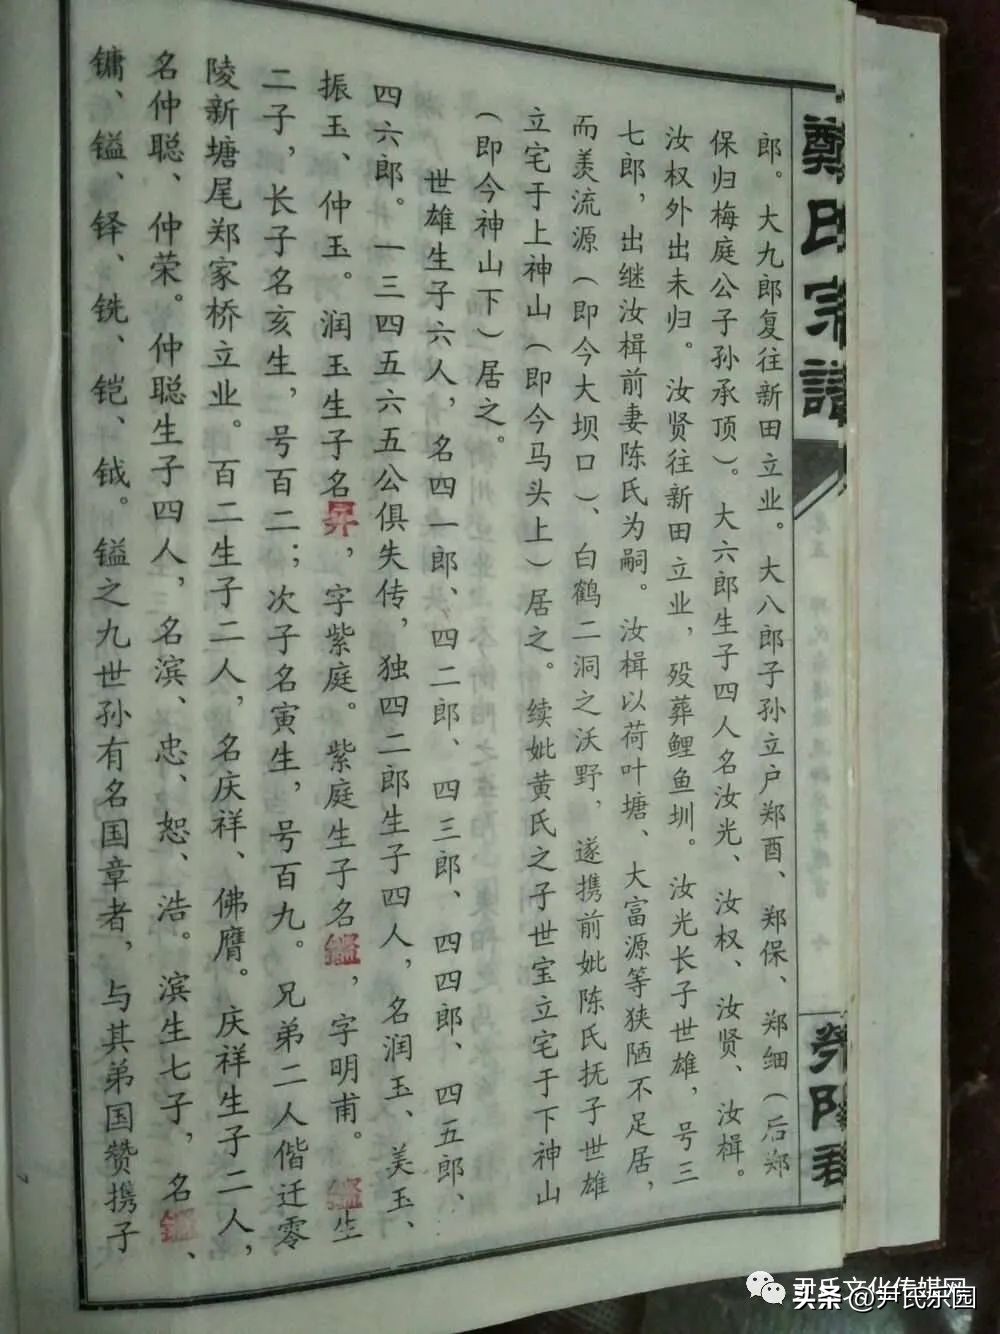 郑氏宗谱
荥阳
郎。大九郎复往新田立业。大八郎子孙立户郑酉、郑保、郑细（后郑
保归梅庭公子孙承顶）。大六郎生子四人名汝光、汝权、汝贤、汝楫。
汝权外出未归。汝贤往新田立业，殁葬鲤鱼圳。汝光长子世雄，号三
七郎，出继汝楫前妻陈氏为嗣。汝楫以荷叶塘、大富源等狭陋不足居，
而羡流源（即今大坝口）、白鹤二洞之沃野，遂携前妣陈氏抚子世雄
立宅于上神山（即今马头上）居之。续妣黄氏之子世宝立宅于下神山
（即今神山下）居之。
世雄生子六人，名四一郎、四二郎、四三郎、四四郎、四五郎、
四六郎。一三四五六五公俱失传，独四二郎生子四人，名润玉、美玉、
振玉、仲玉。润玉生子名昇，字紫庭。紫庭生子名鑑，字明甫。鑑生
二子，长子名亥生，号百二；次子名寅生，号百九。兄弟二人偕迁零
陵新塘尾郑家桥立业。百二生子二人，名庆祥、佛鹰。庆祥生子二人，
名仲聪、仲荣。仲聪生子四人，名滨、忠、恕、浩。滨生七子，名鑑、
镛、镒、铎、铣、铠、钺。镒之九世孙有名国章者，与其弟国赞携子
尹氏文化传媒网
头条@尹氏乐园